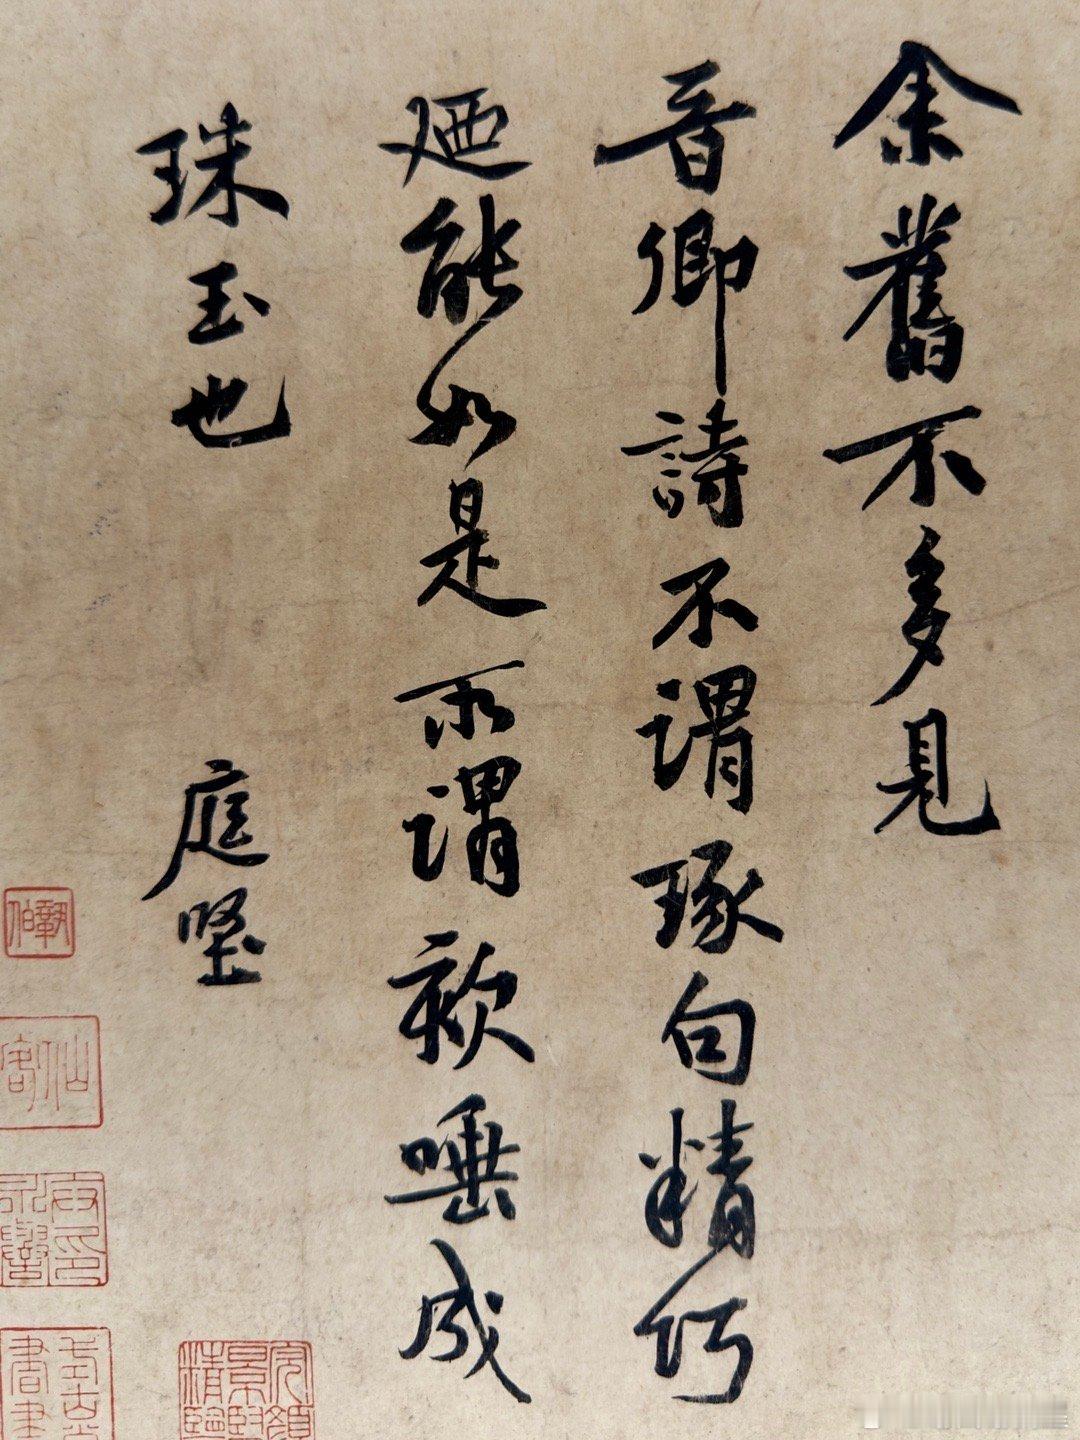 余舊不多見
晉卿詩不謂琢句精巧
廼能如是所謂欬唾成
珠玉也
庭堅